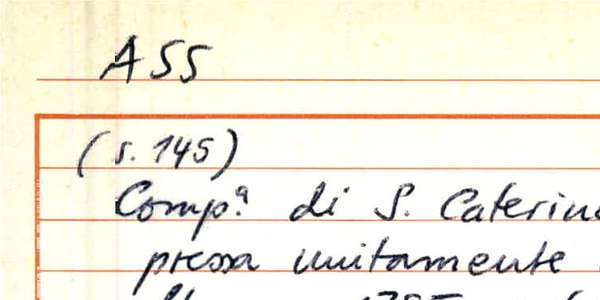 ASS
(s. 145)
Comp.ª di S. Caterin
pressa unitamente
1785